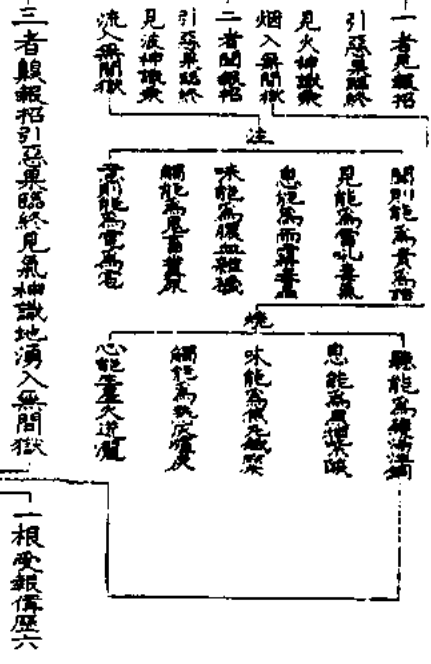 一者見報招
引惡果臨終
見火神識乘
烟入無間獄
二者聞報招
引惡果臨終
見波神識乘
流入無間獄
注
聞則能為責為詰
見能為雷吼毒氣
息能為雨霧毒
味能為膿血雜穢
觸能為鬼畜糞尿
意則能為電為雹
燒
聽能為鑊湯洋銅
息能為黑烟紫焰
味能為燋丸鐵糜
觸能為熱灰爐炭
心能生星火迸灑
三者齅報招引惡果臨終見氣神識地湧入無間獄
一根受報備歷六